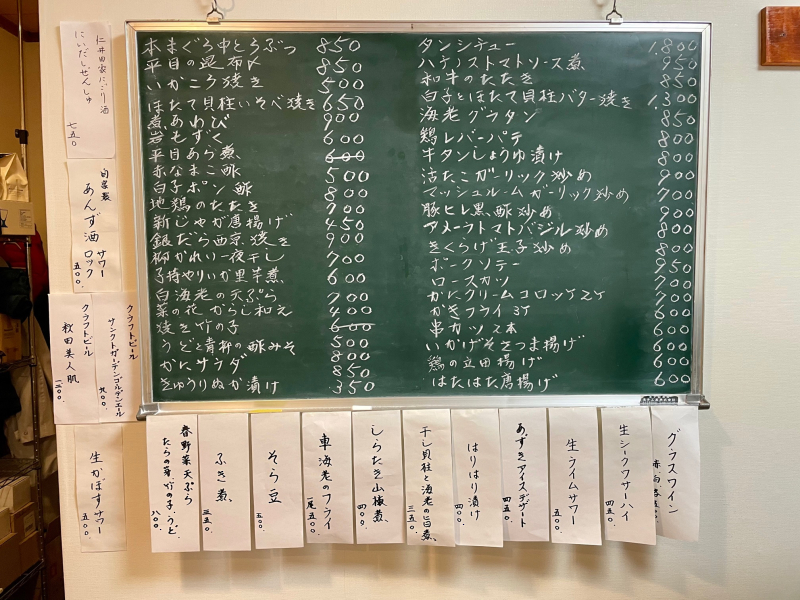 本まぐろ中とろぶつ 850
平目の昆布〆 850
いかころ焼き 500
ほたて貝柱いそべ焼き 650
煮あわび 900
岩もずく 600
平目あら煮 600
赤なまこ酢 500
白子ポン酢 800
地鶏のたたき 700
新じゃが唐揚げ 450
銀だら西京焼き 900
柳かれい一夜干し 700
子持やりいか里芋煮 600
白海老の天ぷら 700
菜の花からし和え 400
焼き竹の子 600
うどと青柳の酢みそ 500
かにサラダ 800
きゅうりぬか漬け 350
タンシチュー 1,800
ハチノストマトソース煮 950
和牛のたたき 850
白子とほたて貝柱バター焼き 1,300
海老グラタン 850
鶏レバーパテ 800
牛タンしょうゆ漬け 800
活たこガーリック炒め 900
マッシュルームガーリック炒め 700
豚ヒレ黒酢炒め 900
アメーラトマトバジル炒め 800
きくらげ玉子炒め 800
ポークソテー 950
ロースカツ 700
かにクリームコロッケ2ケ 700
かきフライ3ケ 600
串カツ2本 600
いかげそさつま揚げ 600
鶏の立田揚げ 600
はたはた唐揚げ 600
仁井田家にごり酒
にいだしぜんしゅ
七五〇
自家製
あんず酒 サワー
ロック
五〇〇.
クラフトビール
サンクトガーデンゴールデンエール
九〇〇.
クラフトビール
秋田美人肌
生かぼすサワー
五〇〇.
グラスワイン
赤・白・各五〇〇
生シークワサーハイ
四五〇.
生ライムサワー
五〇〇.
あずきアイスデザート
四五〇.
はりはり漬け
四〇〇.
干し貝柱と海老の旨煮
三五〇.
しらたき山椒煮
四〇〇.
車海老のフライ
一尾五〇〇.
そら豆
五〇〇.
ふき煮
三五〇.
春野菜天ぷら
たらの芽・竹の子・うど
八〇〇.